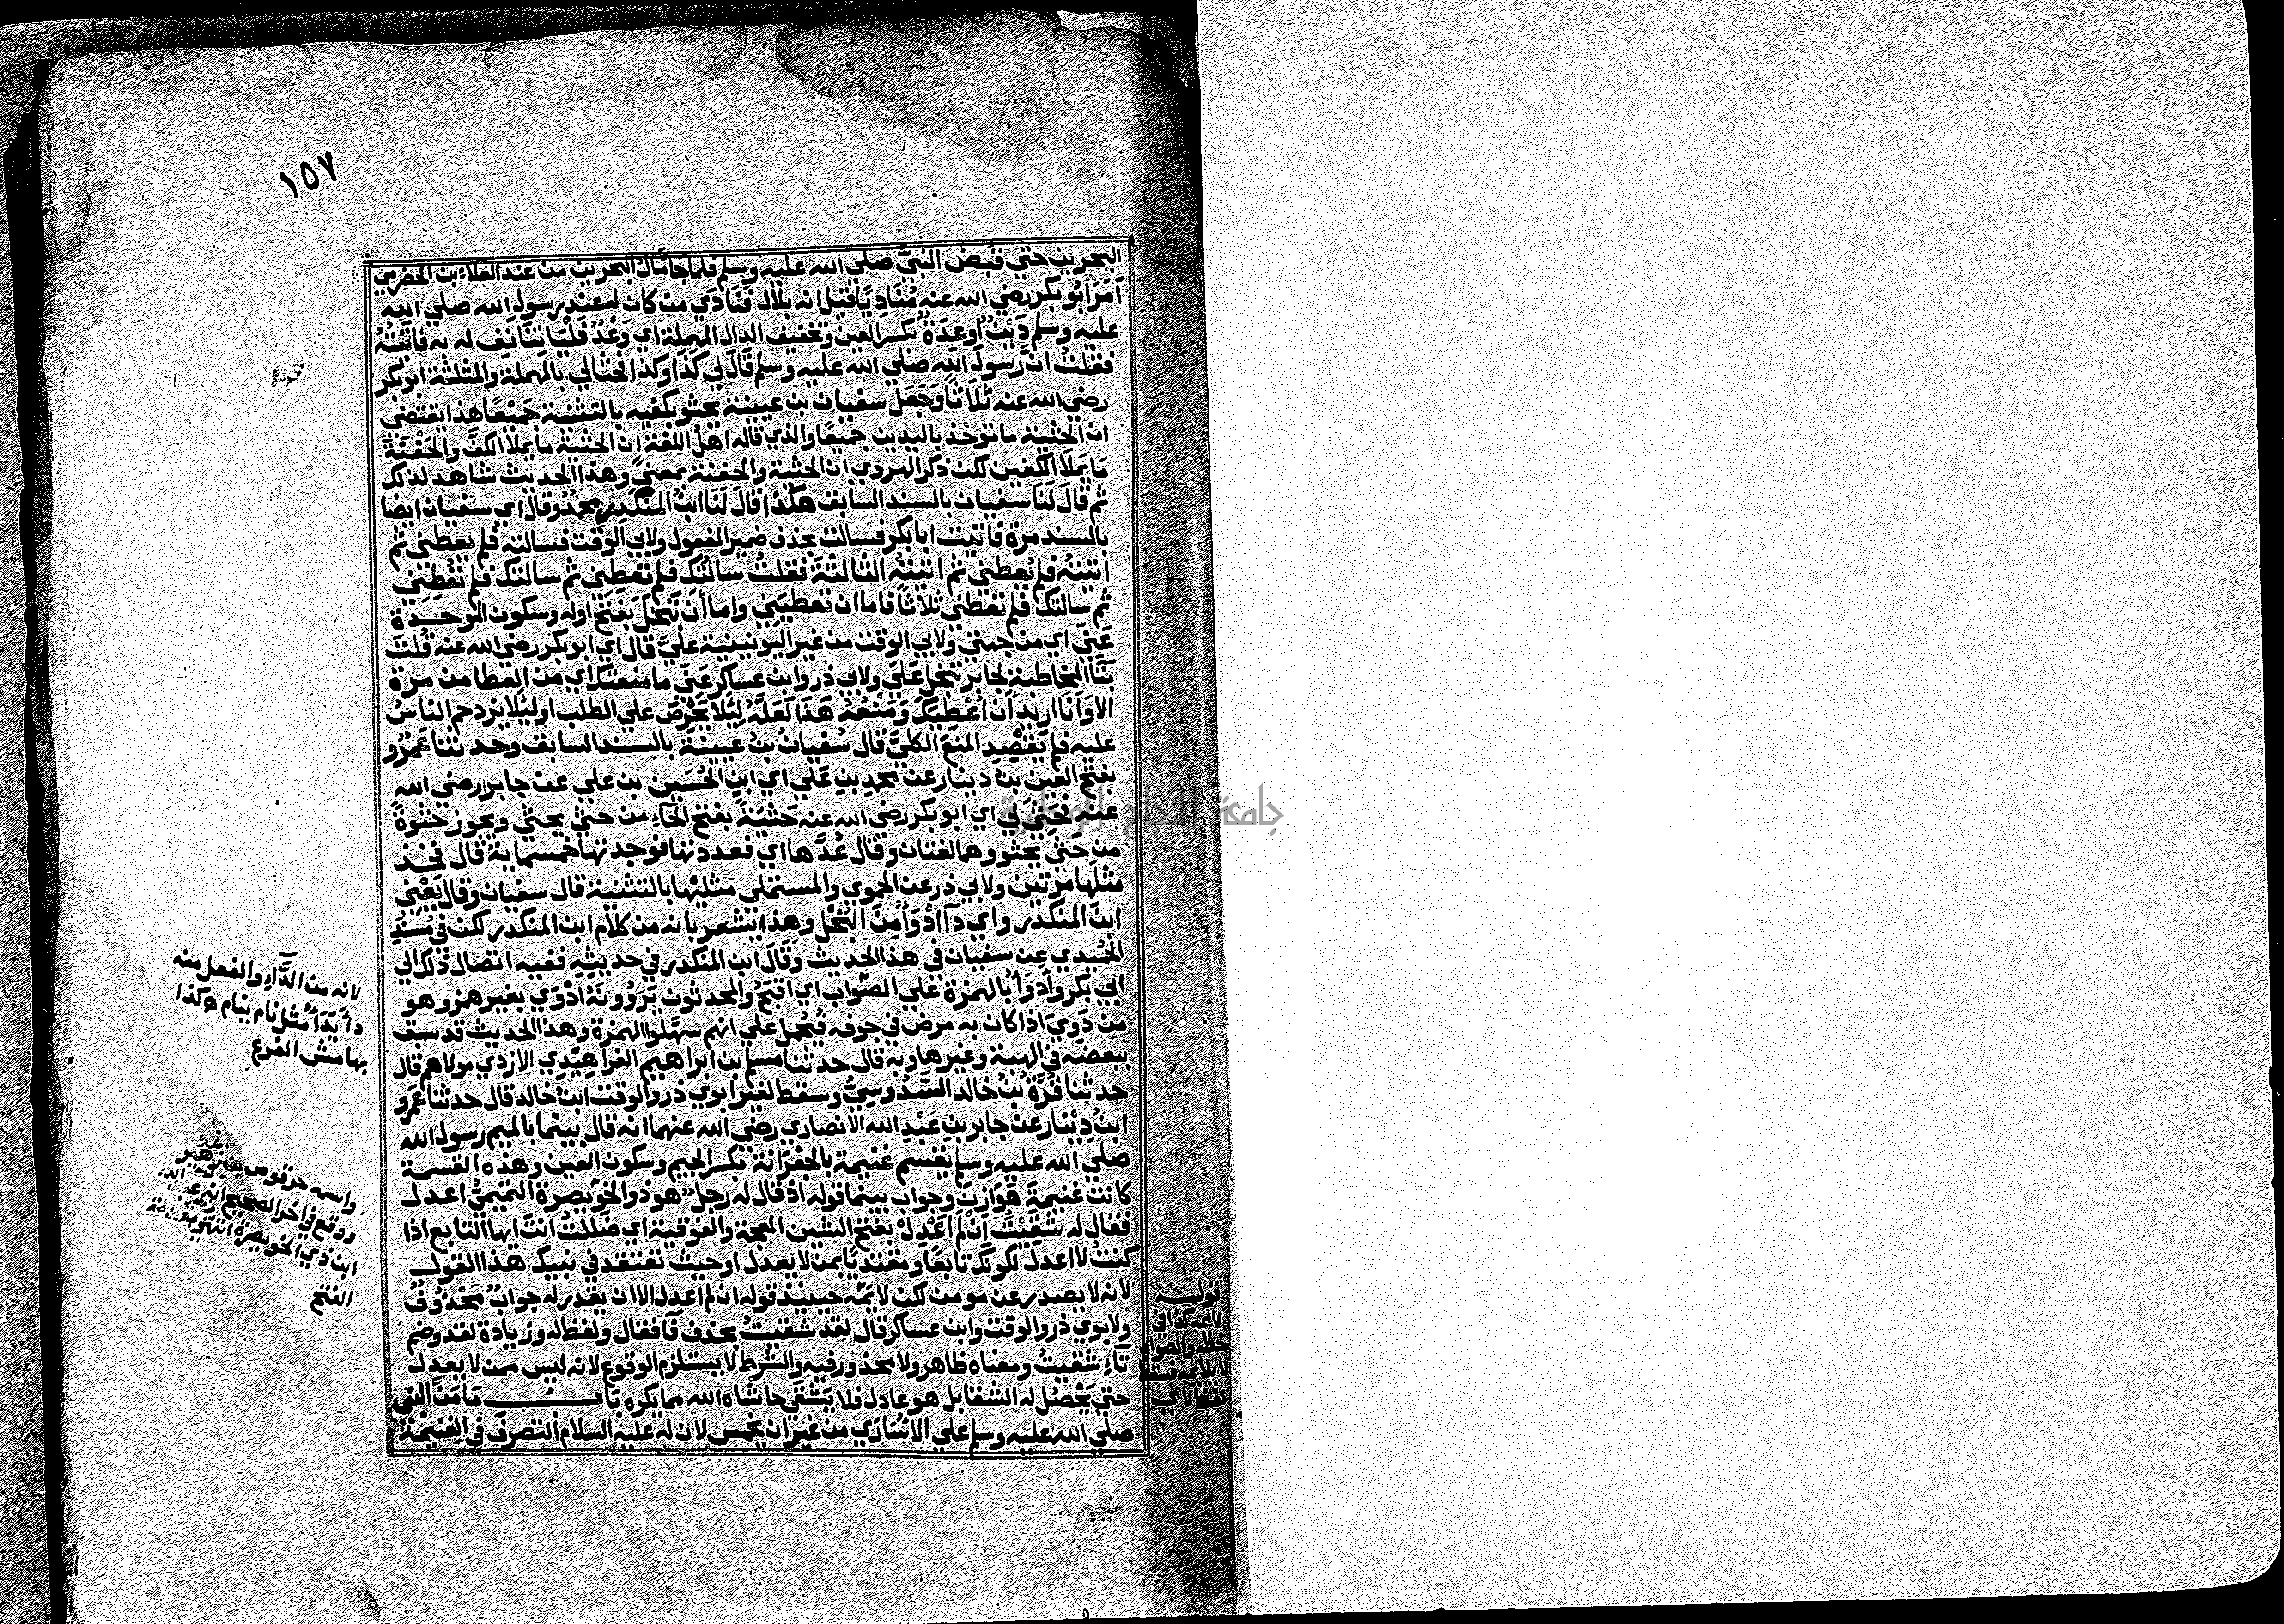 ١٥٧
البحرين حتي قُبِضَ النبيُّ صلي الله عليه وسلم فلما جَا مَالُ البحرين من عند العَلَاءِ بن الحضرمي
اَمَرَ ابو بكر رضي الله عنه مُنَادِيًا قيل انه بلال فَنَادَي من كان له عند رسولِ الله صلي الله
عليه وسلم دَيْنٌ اوعِدَةٌ بكسر العين وتخفيف الدال المهملة اي وَعْدٌ فَلْيَاتِنَا نَفِ له به فاتيتُهُ
فقلتُ انَّ رسولَ الله صلي الله عليه وسلم قَالَ لي كَذَا وكذا فحثالي بالمهملة والمثلثة ابو بكر
رضي الله عنه ثَلَاثًا وَجَعَلَ سفيان بن عيينة يحثو بكفيه بالتثنية جَمْيعًا هذا يقتضي
ان الحثية ما تؤخذ باليدين جميعًا والذي قاله اهلُ اللغة ان الحثية ما يملأ الكفَّ والحَفْنَةُ
مَا يَملَا الكفين لكن ذكر الهروي ان الحثية والحفنة بمعنيً وهذا الحديث شاهد لذلك
ثم قَالَ لَنَا سفيان بالسند السابق هكَذَا قَالَ لَنَا ابنُ المنكدِرِ محمدٌ وقال اي سفيان ايضا
بالسند مرة فاتيت ابا بكر فسالت بحذف ضمير المفعول ولابي الوقت فسالته فلم يعطني ثم
اتيتُهُ فلم يُعطني ثم اتيتهُ الثالثَةَ فقلتُ سالتُكَ فلم تُعَطِنِي ثم سالتكَ فلم تُعْطِنِي
ثم سالتكَ فلم تعطني ثلاثًا فاما ان تعطيَنِي واما أن تَبْخَلَ بفتح اوله وسكون الموحدة
عَنِّي اي من جهتي ولابي الوقت من غير اليونينية عليَّ قال اي ابو بكر رضي الله عنه قُلتَ
بتَا المخاطبة لجابر تبخل عَلَيَّ ولابي ذر وابن عساكر عَنِّي ما منعتك اي من العطا من مرة
الا وَاَنَا اريد أَن أُعْطِيَكَ وَمَنْعُهُ هَذَا لَعَلَّهُ لِئَلا يَحْرُصَ علي الطلب او ليئلا يزدحم الناسُ
عليه فلم يَقصِدِ المنعَ الكليَّ قال سُفيانُ بنُ عيينَةَ بالسند السابق وحدثنا عَمرٌو
بفتح العين بنُ دينار عن محمد بنِ عَلي اي ابنِ الحُسَينِ بن علي عن جابر رضي الله
عنه فَحَثَي لي اي ابو بكر رضي الله عنه حَثْيَةً بفتح الحَآءِ من حثي يحثي ويجوز حثوةً
من حثي يحثو وهما لغتان وقال عُدَّها اي فعددتها فوجدتها خمسماية قال فخذ
مثلها مرتين ولابي ذر عن الحموي والمستملي مثليها بالتثنية قال سفيان وقال يَعْنِي
ابنَ المنكدر واي دآ اَدْوَأُ مِنَ البُخْلِ وهذا يشعر بانه من كلام ابن المنكدر لكن في مُسْنَدِ
الحُمَيدي عن سفيان في هذا الحديث وَقَالَ ابن المنكدر في حديثِهِ ففيه اتصال ذلك الي
ابي بكر وأَدْوَأُ بالهمزة علي الصَّواب اي اقبحُ والمحدثون يَرْوُونَهُ اَدْوَي بغير همز وهو
من دَوِيَ اذا كان به مرض في جوفه فَيُحمل علي انهم سَهَّلوا الهمزة وهذا الحديث قد سبق
ببعضه في الهبة وغيرها وبه قال حدثنا مسلم ابن ابراهيم الفَرَاهيدي الازدي مولاهم قال
حدثنا قُرَّةُ بنُ خالد السَّدُ وسِيُّ وسقط لغير ابوي ذر والوقت ابنُ خالد قال حدثنا عَمرو
ابنُ دِيْنار عن جابر بنِ عَبْدِ الله الانصاري رضي الله عنهما انه قال بينما بالميم رسول الله
صلي الله عليه وسلم يقسم غنيمة بالجِعْرَانة بكسر الجيم وسكون العين وهذه القسمة
كانت غنيمةَ هَوَازِنَ وجواب بينما قوله اذ قال له رجلٌ هو ذو الخُوَيصرة التميميُّ اعدل
فقال له شَقِيْتَ اِنْ لَم اَعْدِلْ بفتح الشين المعجمة والفوقية اي ضَلَلتَ انتَ ايها التابع اذا
كنتُ لا اعدل لكونك تابعًا ومقتديًا بمن لا يعدل او حيث تعتقد في نبيك هذا القول
لانه لا يصدر عن مومن لكن لا يمّه حينيذ قوله ان لم اعدل الا ان يقدر له جوابٌ مَحْذُوفٌ
ولابوي ذر والوقت وابن عساكر قال لقد شقيتُ بحذف فآ فقال ولفظ له وزيادة لقد وضم
تآءِ شقيتُ ومعناه ظاهر ولا محذور فيه والشرط لا يستلزم الوقوع لانه ليس ممن لا يعدل
حتي يَحْصُل له الشقا بل هو عادل فلا يَشْقَي حاشاه الله مما يكره بَابُ مَا مَنَّ النبي
صلي الله عليه وسلم علي الاُسَارَي من غير ان يخمس لان له عليه السلام التصرفَ في الغنيمة
لانه من الدَّآءِ والفعل منه
دأَ يَدَأُ مثل نام ينام هكذا
بهامش الفرع
واسمه حرقوص بن زهير
ووقع في اخر الصحيح انه عبد الله
ابن ذي الخويصرة انتهي
الفتح
قوله
لا يمه كذا في
خطه والصواب
لا يلايمه فسقط
لفظ لاي
جامعة النجاح الوطنية